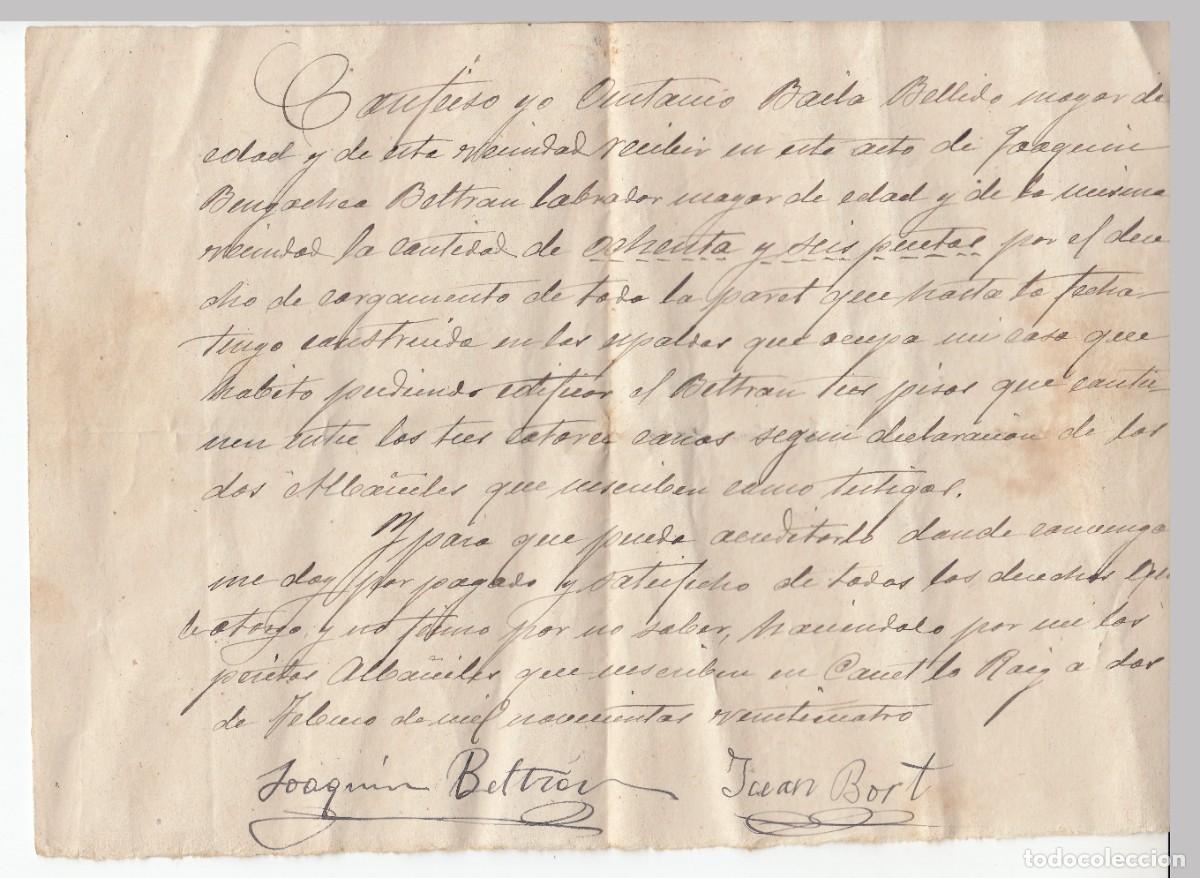 Confieso yo Baila Bellido mayor de
edad y de esta vecindad recibir en este acto de Joaquin
Bengochea Beltran labrador mayor de edad y de la misma
vecindad la cantidad de ochenta y seis pesetas por el dere
cho de cargamento de toda la paret que hasta la fecha
tengo construida en las espaldas que ocupa mi casa que
habito pudiendo edificar el Beltran tres pisos que contie-
nen entre los tres catorce canas segun declaracion de los
dos Albañiles que suscriben como testigos.
Y para que pueda acreditarlo donde convenga
me doy por pagado y satisfecho de todos los derechos que
le otorgo y no firmo por no saber, haciendolo por mi los
peritos Albañiles que suscriben en Canet lo Roig a dos
de Febrero de mil novecientos veinticuatro
Joaquín Beltrán Juan Bort
todocoleccion